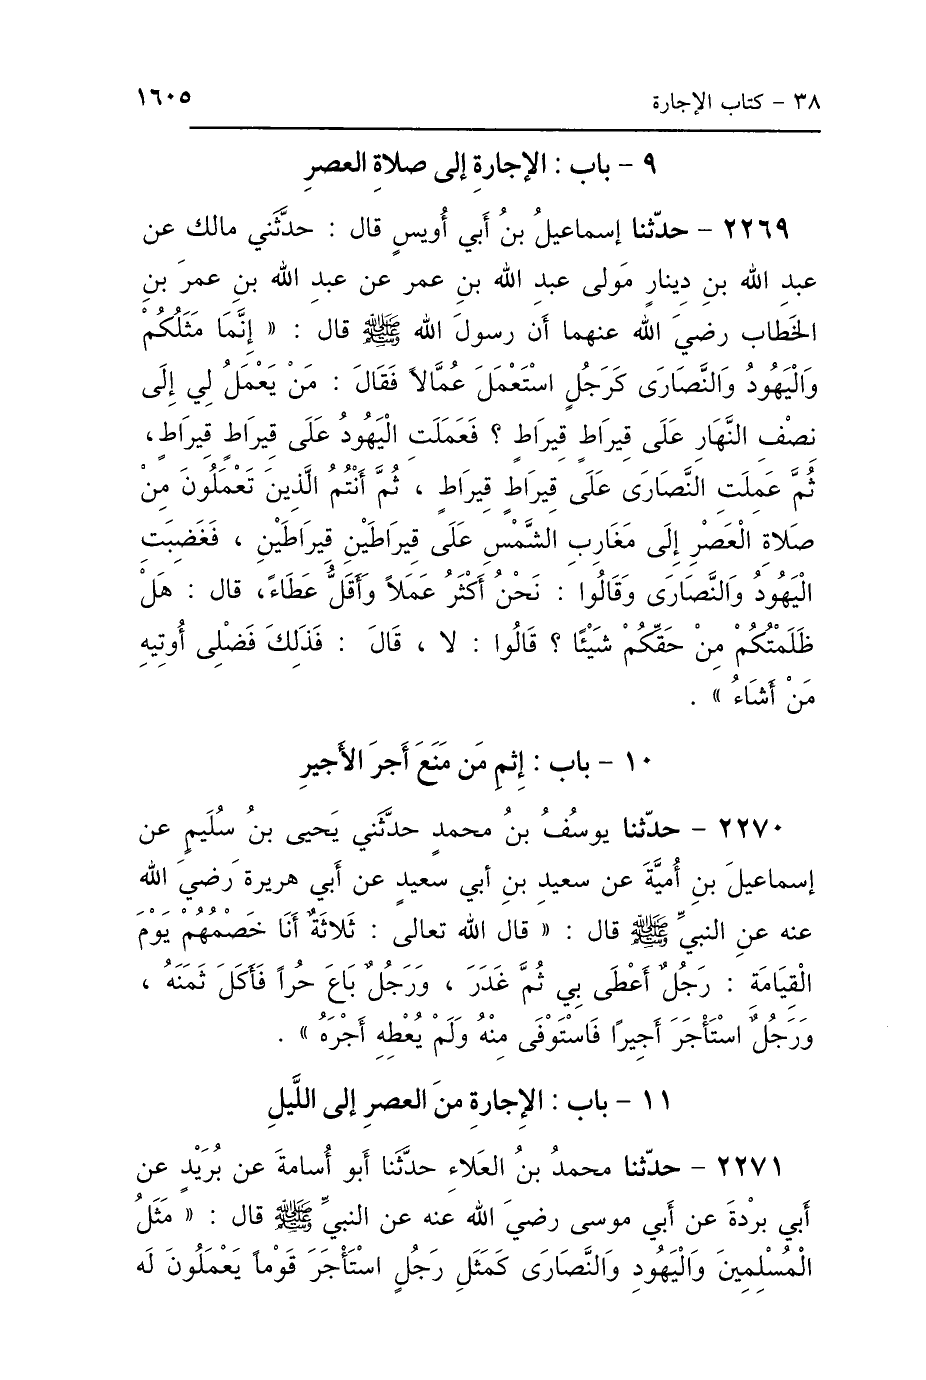 ٣٨ - كتاب الإجارة ١٦٠٥
٩ - باب : الإجارةِ إلى صلاةِ العصرِ
٢٢٦٩ - حدّثنا إسماعيلُ بنُ أبي أُويسٍ قال : حدَّثَني مالك عن
عبدِ الله بنِ دينارٍ مَولى عبدِ الله بنِ عمر عن عبدِ الله بنِ عمرَ بنِ
الخَطاب رضيَ الله عنهما أن رسولَ الله ﷺ قال : « إنَّمَا مَثَلُكُمْ
وَالْيَهُودُ وَالنَّصَارَى كَرَجُلٍ اسْتَعْمَلَ عُمَّالاً فَقَالَ : مَنْ يَعْمَلُ لِي إِلَى
نِصْفِ النَّهَارِ عَلَى قِيرَاطٍ قِيرَاطٍ ؟ فَعَمِلَتِ الْيَهُودُ عَلَى قِيرَاطٍ قِيرَاطٍ،
ثُمَّ عَمِلَتِ النَّصَارَى عَلَى قِيرَاطٍ قِيرَاطٍ ، ثُمَّ أَنْتُمُ الَّذِينَ تَعْمَلُونَ مِنْ
صَلاَةِ الْعَصْرِ إِلَى مَغَارِبِ الشَّمْسِ عَلَى قِيرَاطَيْنِ قِيرَاطَيْنِ ، فَغَضِبَتِ
الْيَهُودُ وَالنَّصَارَى وَقَالُوا : نَحْنُ أَكْثَرُ عَمَلاً وَأَقَلُّ عَطَاءً، قال : هَلْ
ظَلَمْتُكُمْ مِنْ حَقِّكُمْ شَيْئًا ؟ قَالُوا : لا ، قَالَ : فَذَلِكَ فَضْلِى أُوتِيهِ
مَنْ أَشَاءُ » .
١٠ - باب : إثمِ مَن مَنَعَ أَجرَ الأَجيرِ
٢٢٧٠ - حدّثنا يوسُفُ بنُ محمدٍ حدَّثَني يَحيى بنُ سُلَيمٍ عن
إسماعيلَ بنِ أُميَّةَ عن سعيدِ بنِ أبي سعيدٍ عن أبي هريرة رَضيَ الله
عنه عنِ النبيِّ ﷺ قال : « قال الله تعالى : ثَلاَثَةٌ أَنَا خَصْمُهُمْ يَوْمَ
الْقِيَامَةِ : رَجُلٌ أَعْطَى بِي ثُمَّ غَدَرَ ، وَرَجُلٌ بَاعَ حُراً فَأَكَلَ ثَمَنَهُ ،
وَرَجُلٌ اسْتَأْجَرَ أَجِيرًا فَاسْتَوْفَى مِنْهُ وَلَمْ يُعْطِهِ أَجْرَهُ » .
١١ - باب : الإجارةِ منَ العصرِ إلى اللَّيلِ
٢٢٧١ - حدّثنا محمدُ بنُ العَلاءِ حدَّثَنا أبو أُسامةَ عن بُرَيْدٍ عن
أبي برْدةَ عن أبي موسى رضيَ الله عنه عن النبيِّ ﷺ قال : « مَثَلُ
الْمُسْلِمِينَ وَالْيَهُودِ وَالنَّصَارَى كَمَثَلِ رَجُلٍ اسْتَأْجَرَ قَوْماً يَعْمَلُونَ لَه